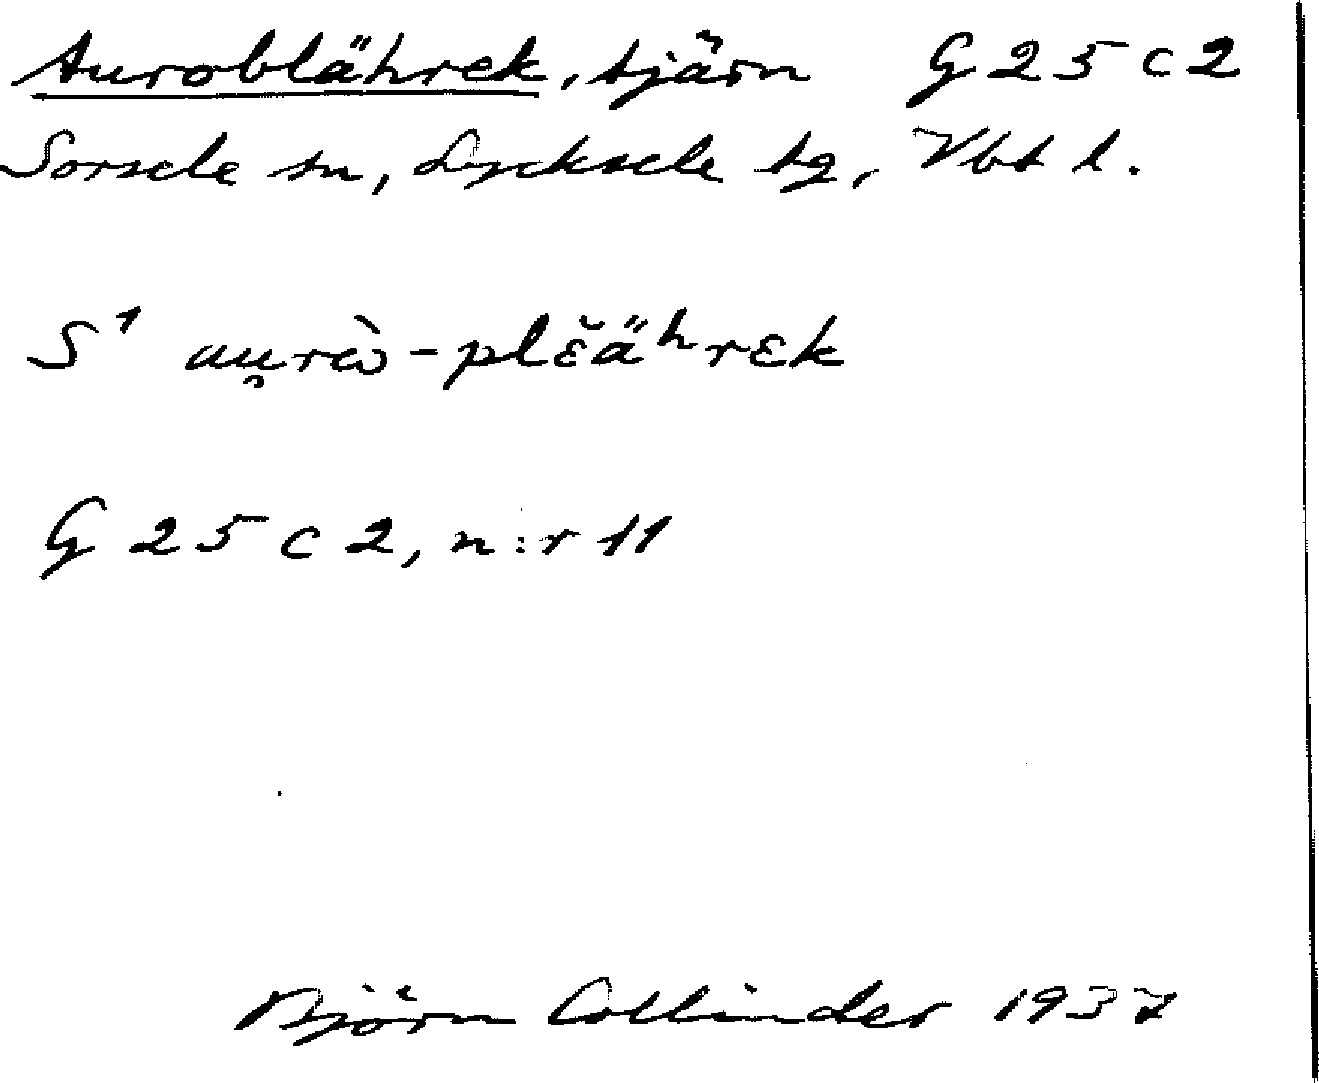 Auroblährek, tjärn G 25 c 2
Sorsele sn, Lycksele tg, Vbt l.
S¹ au̯rὼ-plε̆äʰrεk
G 25 c 2, n:r 11
Björn Collinder 1937